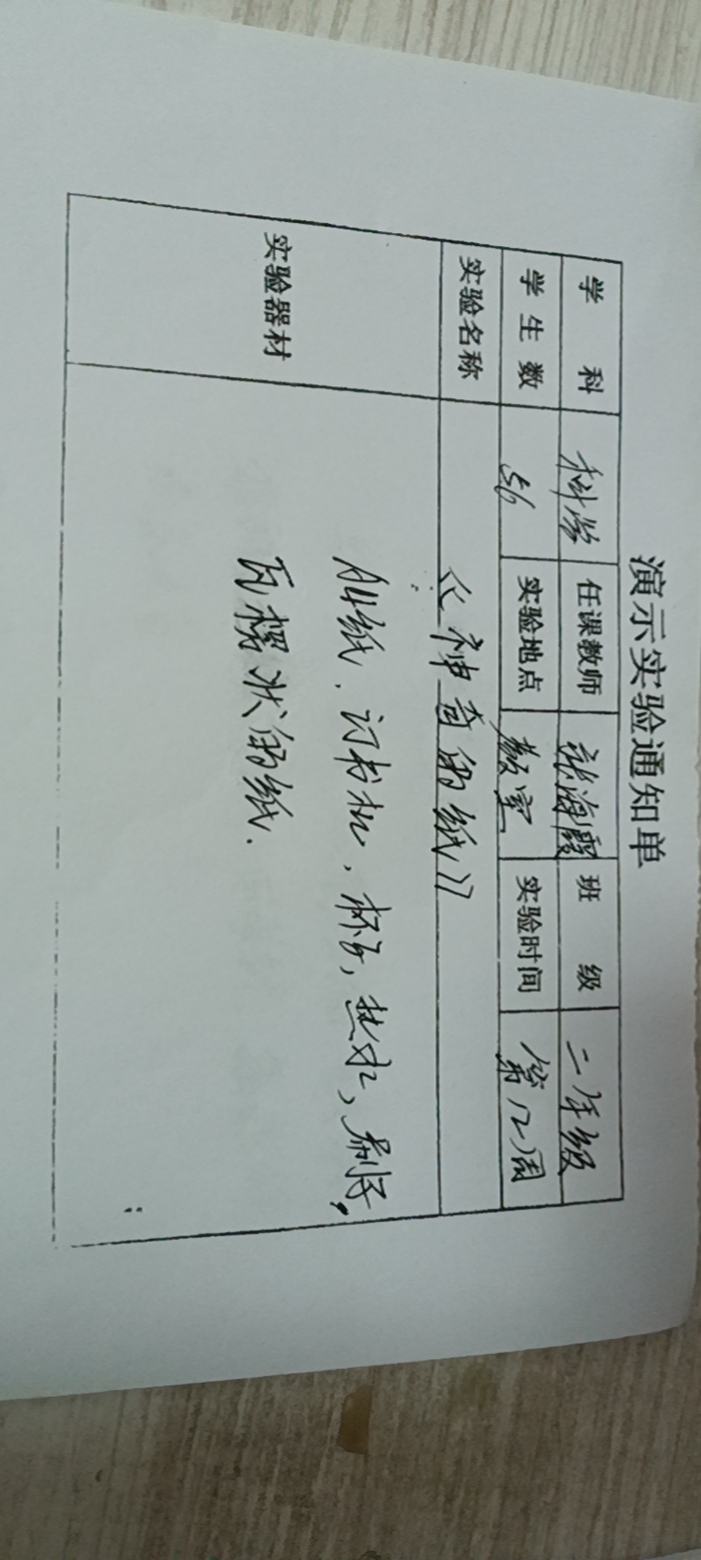 演示实验通知单
学 科 科学 任课教师 张海霞 班 级 二年级
学生数 56 实验地点 教室 实验时间 第12周
实验名称 《神奇的纸》
实验器材 A4纸、订书机、杯子,热水,
瓦楞状的纸.